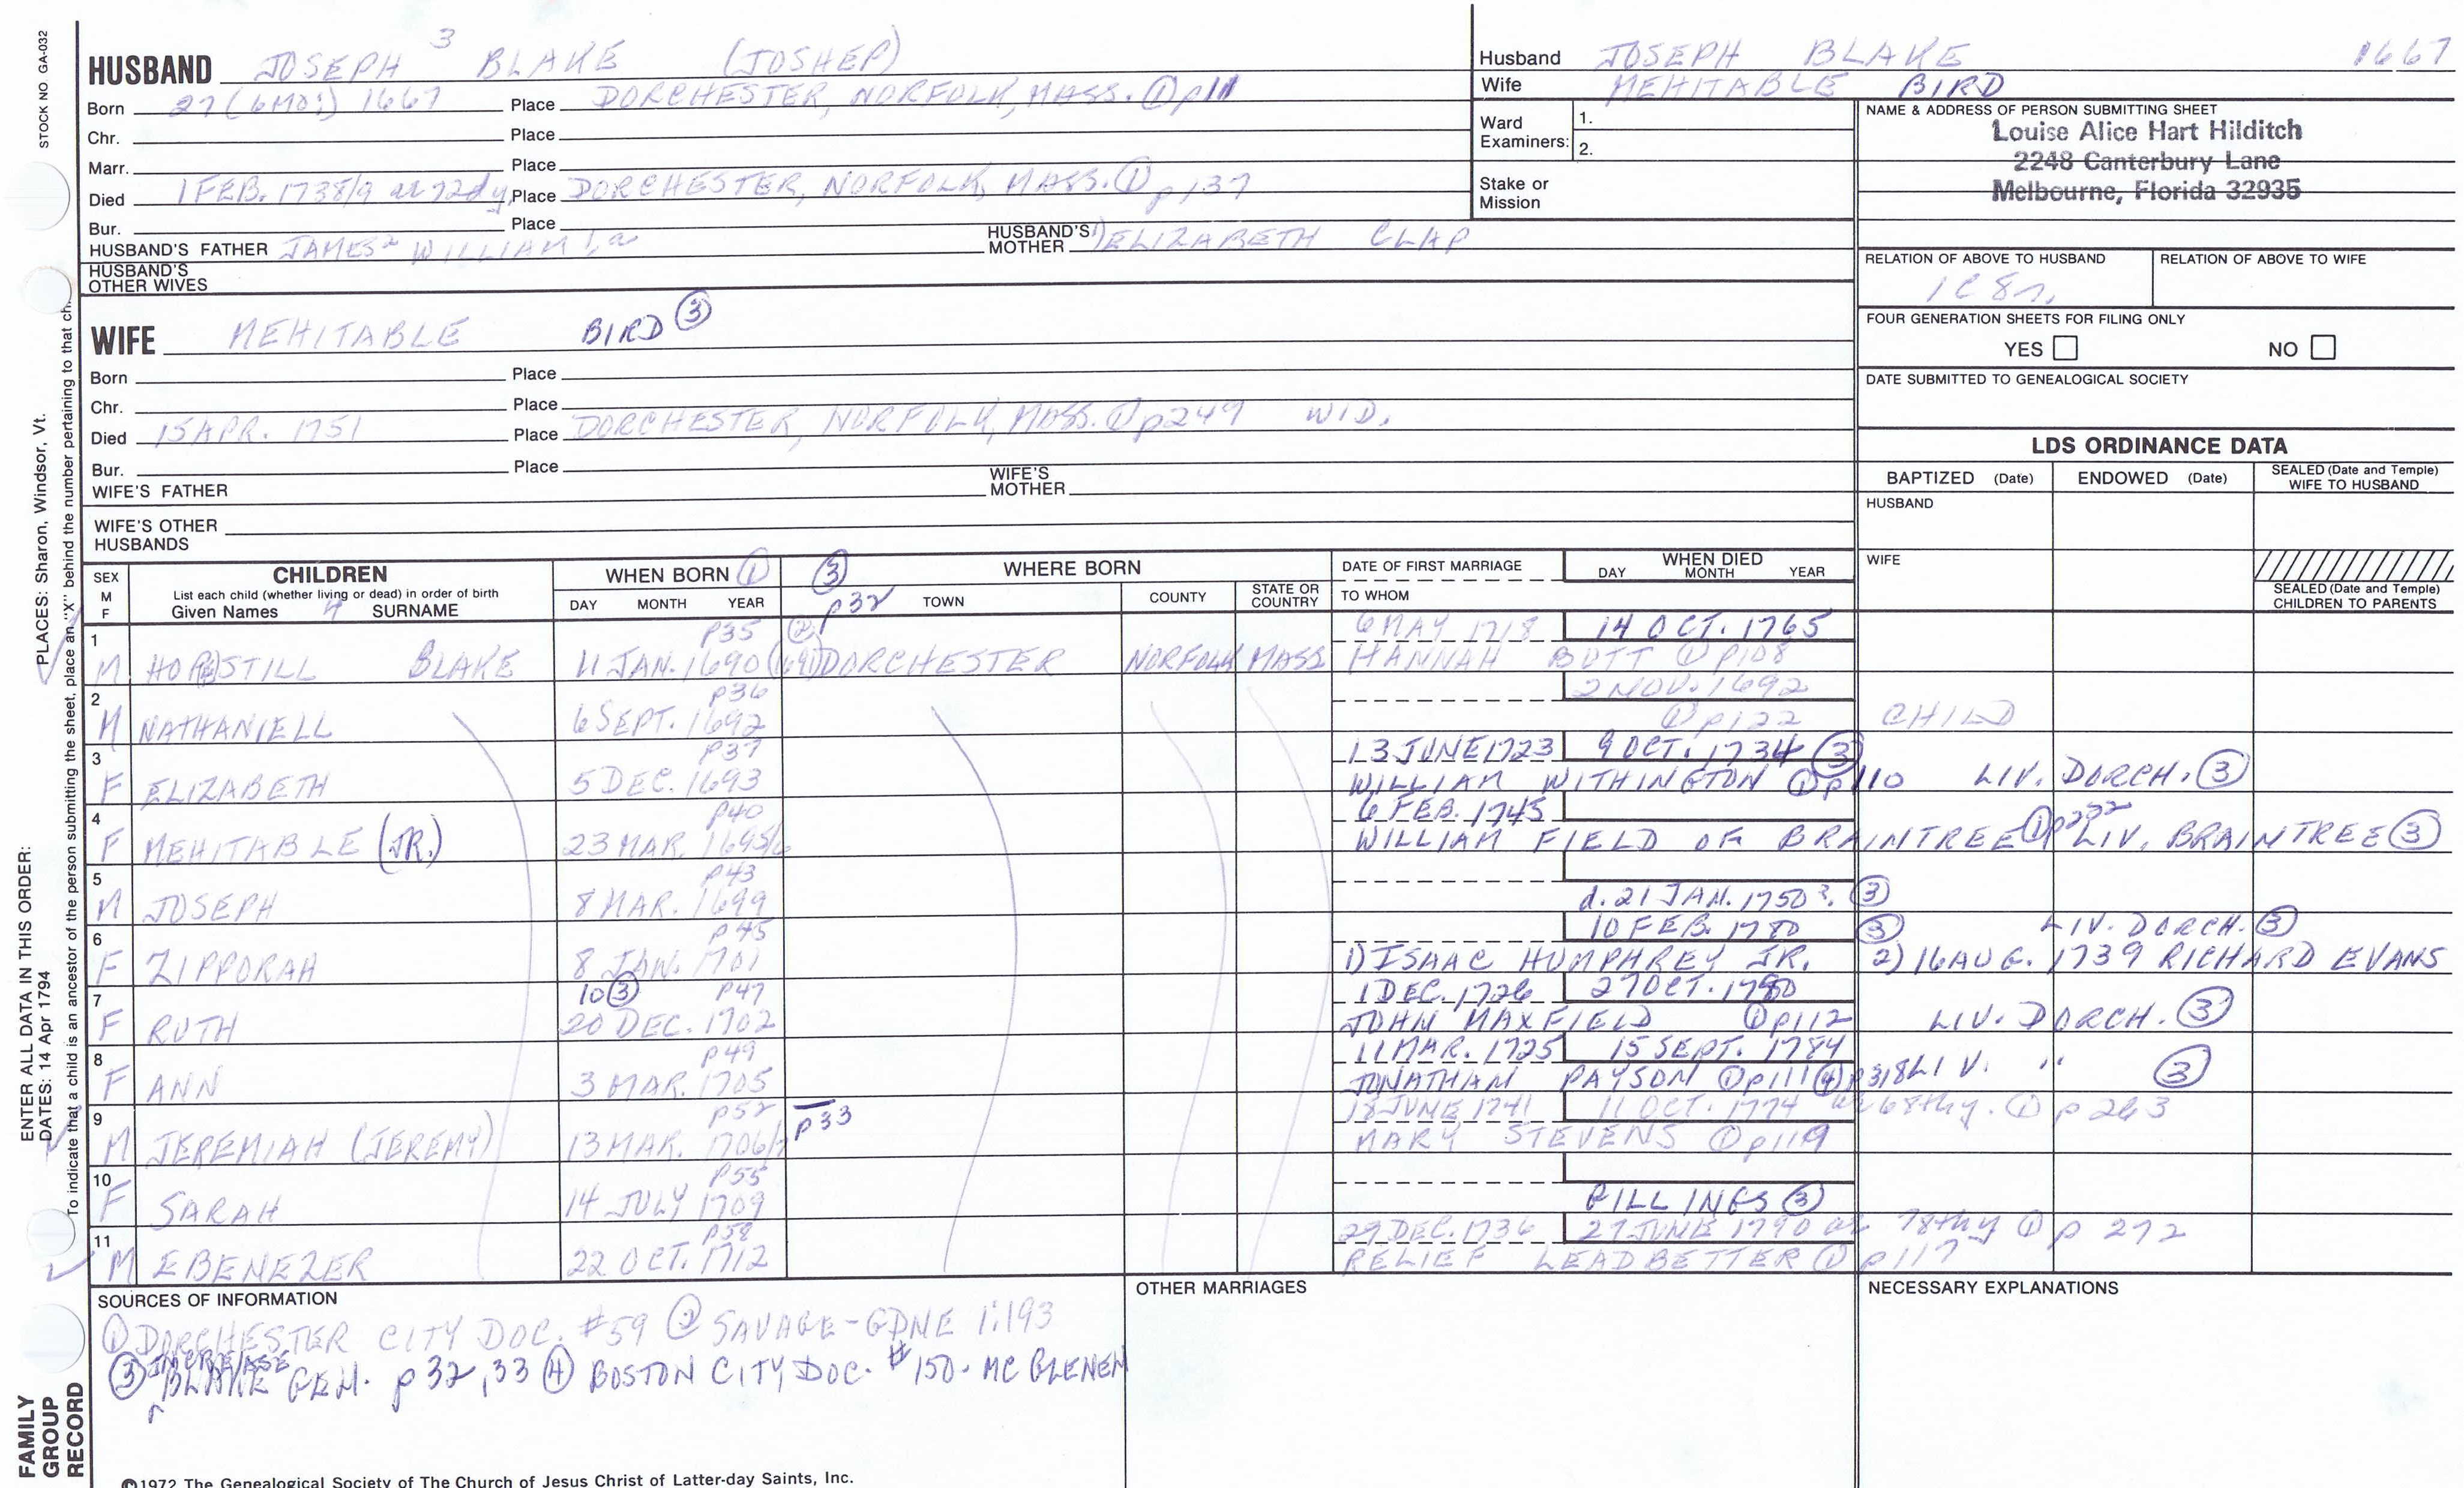 STOCK NO. GA-032
HUSBAND JOSEPH 3 BLAKE (JOSHEP)
Born 27 (6 MO:) 1667 Place DORCHESTER, NORFOLK, MASS. ① p11
Chr. Place
Marr. Place
Died 1 FEB. 1738/9 ae 72dy Place DORCHESTER, NORFOLK, MASS. ① p137
Bur. Place
HUSBAND'S FATHER JAMES 2 WILLIAM 1, a HUSBAND'S MOTHER ELIZABETH CLAP
HUSBAND'S OTHER WIVES
Husband JOSEPH BLAKE 1667
Wife MEHITABLE BIRD
Ward Examiners: 1.
2.
Stake or Mission
NAME & ADDRESS OF PERSON SUBMITTING SHEET
Louise Alice Hart Hilditch
2248 Canterbury Lane
Melbourne, Florida 32935
RELATION OF ABOVE TO HUSBAND RELATION OF ABOVE TO WIFE
1C 8r.
FOUR GENERATION SHEETS FOR FILING ONLY
YES NO
DATE SUBMITTED TO GENEALOGICAL SOCIETY
WIFE MEHITABLE BIRD ③
Born Place
Chr. Place
Died 15 APR. 1751 Place DORCHESTER, NORFOLK, MASS. ① p249 WID.
Bur. Place
WIFE'S FATHER WIFE'S MOTHER
WIFE'S OTHER HUSBANDS
LDS ORDINANCE DATA
BAPTIZED (Date) ENDOWED (Date) SEALED (Date and Temple) WIFE TO HUSBAND
HUSBAND
WIFE
SEALED (Date and Temple) CHILDREN TO PARENTS
SEX M F CHILDREN List each child (whether living or dead) in order of birth Given Names 4 SURNAME
WHEN BORN ① DAY MONTH YEAR
③ p32 WHERE BORN TOWN COUNTY STATE OR COUNTRY
DATE OF FIRST MARRIAGE TO WHOM
WHEN DIED DAY MONTH YEAR
p35 ② 6 MAY 1718 14 OCT. 1765
1 M HOPESTILL BLAKE 11 JAN. 1690 (1691) DORCHESTER NORFOLK MASS HANNAH BUTT ① p108
p36 2 NOV. 1692
2 M NATHANIELL 6 SEPT. 1692 ① p122 CHILD
p37 13 JUNE 1723 9 OCT. 1734 ③
3 F ELIZABETH 5 DEC. 1693 WILLIAM WITHINGTON ① p110 LIV. DORCH. ③
p40 6 FEB. 1745
4 F MEHITABLE (JR.) 23 MAR. 1695/6 WILLIAM FIELD OF BRAINTREE ① p232 LIV. BRAINTREE ③
p43
5 M JOSEPH 8 MAR. 1699 d. 21 JAN. 1750 ?. ③
p45 10 FEB. 1780 ③ LIV. DORCH. ③
6 F ZIPPORAH 8 JAN. 1701 1) ISAAC HUMPHREY JR. 2) 16 AUG. 1739 RICHARD EVANS
10 ③ p47 1 DEC. 1726 27 OCT. 1780
7 F RUTH 20 DEC. 1702 JOHN MAXFIELD ① p112 LIV. DORCH. ③
p49 11 MAR. 1725 15 SEPT. 1784
8 F ANN 3 MAR. 1705 JONATHAN PAYSON ① p111 ④ p318 LIV. " ③
p52 p33 18 JUNE 1741 11 OCT. 1774 ae 68thy. ① p 263
9 M JEREMIAH (JEREMY) 13 MAR. 1706/7 MARY STEVENS ① p119
p55
10 F SARAH 14 JULY 1709 BILLINGS ③
p58 29 DEC. 1736 27 JUNE 1790 ae 78thy ① p 272
11 M EBENEZER 22 OCT. 1712 RELIEF LEADBETTER ① p117
SOURCES OF INFORMATION
① DORCHESTER CITY DOC. #59 ② SAVAGE-GDNE 1:193
③ INCREASE BLAKE GEN. p32,33 ④ BOSTON CITY DOC. #150. MC GLENEN
OTHER MARRIAGES
NECESSARY EXPLANATIONS
©1972 The Genealogical Society of The Church of Jesus Christ of Latter-day Saints, Inc.
ENTER ALL DATA IN THIS ORDER:
DATES: 14 Apr 1794 PLACES: Sharon, Windsor, Vt.
To indicate that a child is an ancestor of the person submitting the sheet, place an "X" behind the number pertaining to that ch
FAMILY GROUP RECORD